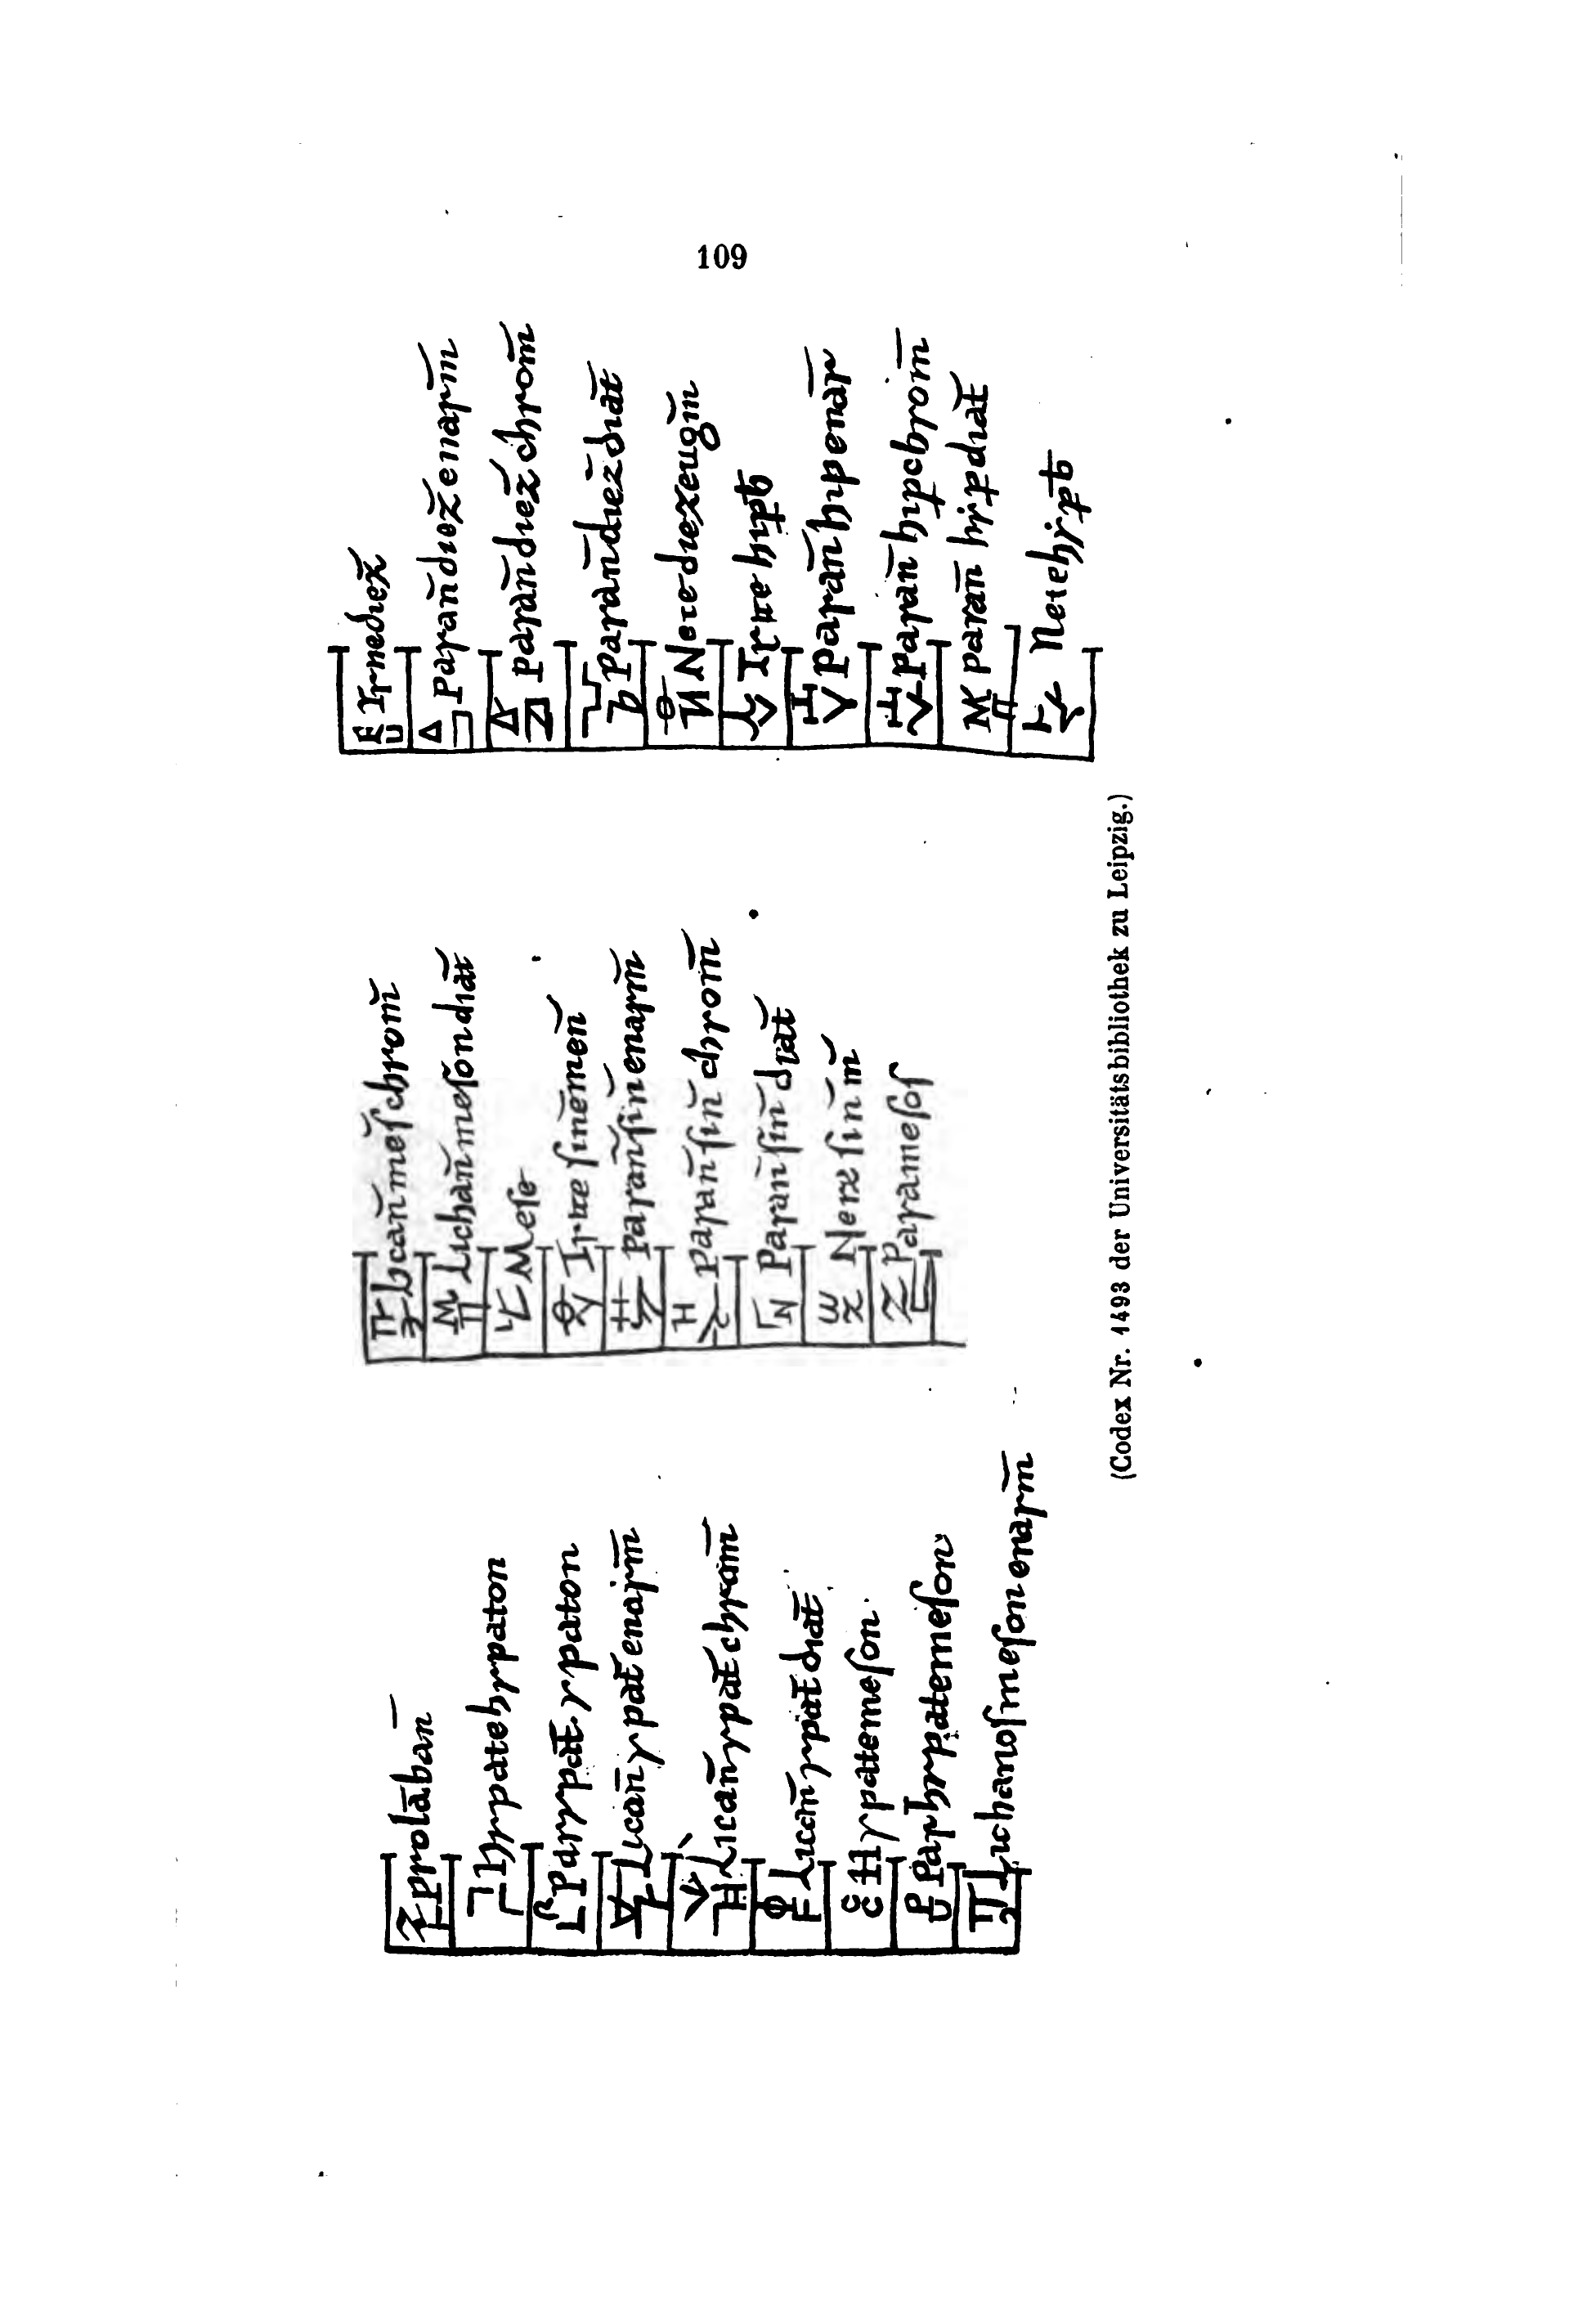 109
prolābān
hypatehypaton
Parypāt ypaton
Licān ypāt enarm̄
Licān ypāt chrom̄
Licān ypāt diāt
Hypatemeſon
Parhypatemeſon
Lichanoſmeſonenarm̄
Licān meſ chrom̄
Lichān meſōn diāt
Meſe
Trite ſinēmēn
parān ſin̄ enarm̄
parān ſin̄ chrom̄
Parān ſin̄ diāt
Nete ſin̄m̄
Parameſoſ
Trnediez̄
Parān diez̄ enarm̄
parān diez̄ chrom̄
parān diez̄ diāt
Nete diezeugm̄
Trite hip̱ƀ
Parān hipenar̄
parān hipchrom̄
parān hip diāt
Netehip̱ƀ
(Codex Nr. 1493 der Universitätsbibliothek zu Leipzig.)